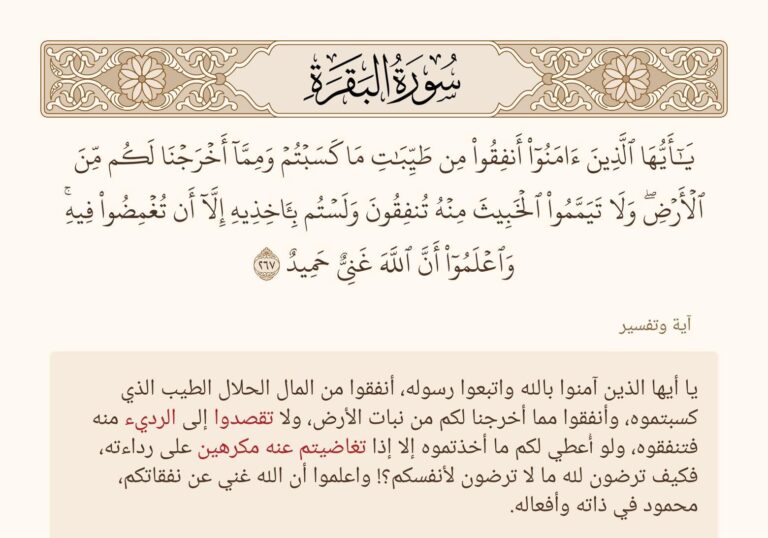 سُورَةُ البَقَرَةِ
يَـٰٓأَيُّهَا ٱلَّذِينَ ءَامَنُوٓا۟ أَنفِقُوا۟ مِن طَيِّبَـٰتِ مَا كَسَبْتُمْ وَمِمَّآ أَخْرَجْنَا لَكُم مِّنَ
ٱلْأَرْضِ ۖ وَلَا تَيَمَّمُوا۟ ٱلْخَبِيثَ مِنْهُ تُنفِقُونَ وَلَسْتُم بِـَٔاخِذِيهِ إِلَّآ أَن تُغْمِضُوا۟ فِيهِ ۚ
وَٱعْلَمُوٓا۟ أَنَّ ٱللَّهَ غَنِىٌّ حَمِيدٌ ٢٦٧
آية وتفسير
يا أيها الذين آمنوا بالله واتبعوا رسوله، أنفقوا من المال الحلال الطيب الذي
كسبتموه، وأنفقوا مما أخرجنا لكم من نبات الأرض، ولا تقصدوا إلى الرديء منه
فتنفقوه، ولو أعطي لكم ما أخذتموه إلا إذا تغاضيتم عنه مكرهين على رداءته،
فكيف ترضون لله ما لا ترضون لأنفسكم؟! واعلموا أن الله غني عن نفقاتكم،
محمود في ذاته وأفعاله.